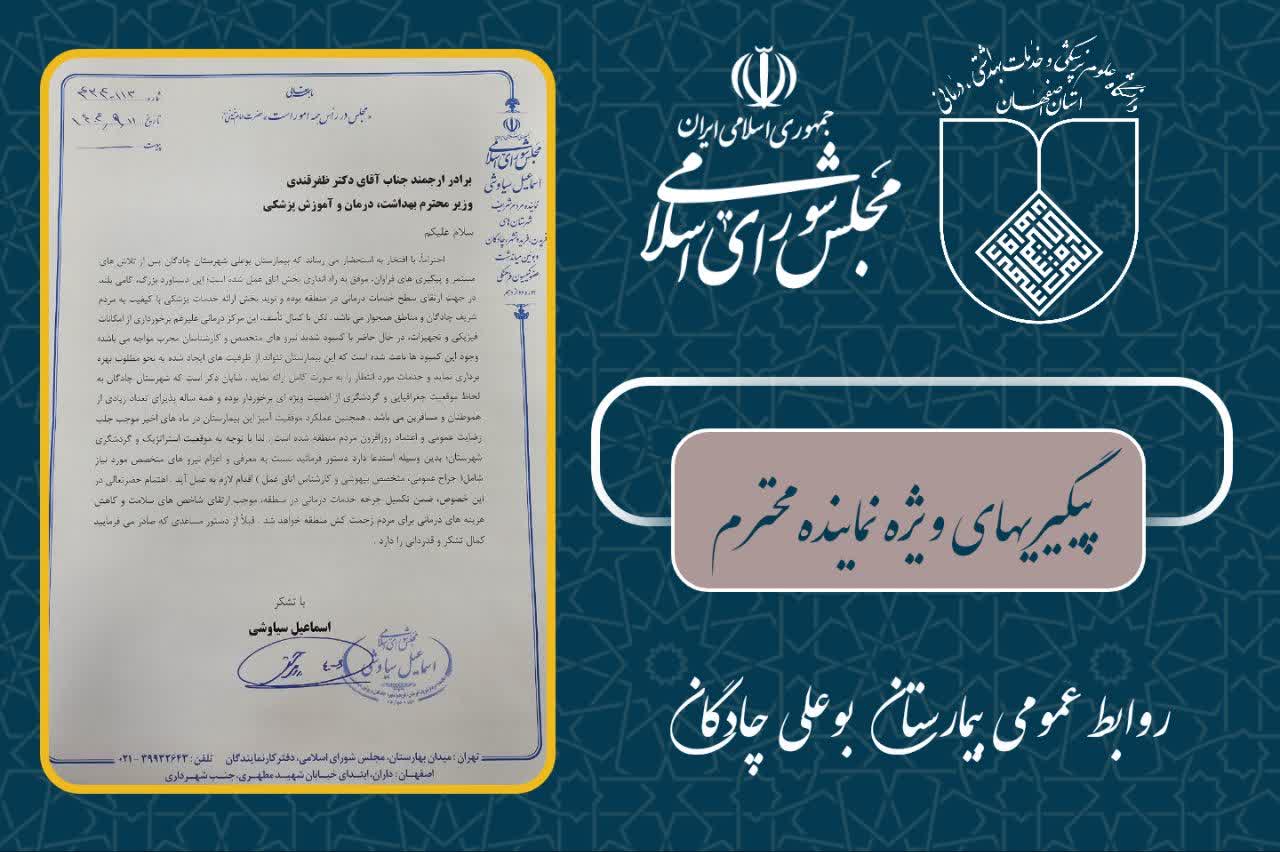 دانشگاه علوم پزشکی و خدمات بهداشتی، درمانی
استان اصفهان
جمهوری اسلامی ایران
مجلس شورای اسلامی
پیگیریهای ویژه نماینده محترم
روابط عمومی بیمارستان بوعلی چادگان
باسمه‌تعالی
«مجلس در راس همه امور است.» حضرت امام خمینی(ره)
شماره
تاریخ
پیوست
مجلس شورای اسلامی
اسماعیل سیاوشی
نماینده مردم شریف
شهرستان های
فریدن، فریدونشهر، چادگان
و بوئین میاندشت
عضو کمیسیون فرهنگی
دوره دوازدهم
برادر ارجمند جناب آقای دکتر ظفرقندی
وزیر محترم بهداشت، درمان و آموزش پزشکی
سلام علیکم
احتراماً، با افتخار به استحضار می رساند که بیمارستان بوعلی شهرستان چادگان پس از تلاش های
مستمر و پیگیری های فراوان، موفق به راه اندازی بخش اتاق عمل شده است؛ این دستاورد بزرگ، گامی بلند
در جهت ارتقای سطح خدمات درمانی در منطقه بوده و نوید بخش ارائه خدمات پزشکی با کیفیت به مردم
شریف چادگان و مناطق همجوار می باشد . لکن با کمال تأسف، این مرکز درمانی علیرغم برخورداری از امکانات
فیزیکی و تجهیزات، در حال حاضر با کمبود شدید نیرو های متخصص و کارشناسان مجرب مواجه می باشد؛
وجود این کمبود ها باعث شده است که این بیمارستان نتواند از ظرفیت های ایجاد شده به نحو مطلوب بهره
برداری نماید و خدمات مورد انتظار را به صورت کامل ارائه نماید . شایان ذکر است که شهرستان چادگان به
لحاظ موقعیت جغرافیایی و گردشگری از اهمیت ویژه ای برخوردار بوده و همه ساله پذیرای تعداد زیادی از
هموطنان و مسافرین می باشد . همچنین عملکرد موفقیت آمیز این بیمارستان در ماه های اخیر موجب جلب
رضایت عمومی و اعتماد روزافزون مردم منطقه شده است . لذا با توجه به موقعیت استراتژیک و گردشگری
شهرستان؛ بدین وسیله استدعا دارد دستور فرمائید نسبت به معرفی و اعزام نیرو های متخصص مورد نیاز
شامل( جراح عمومی، متخصص بیهوشی و کارشناس اتاق عمل ) اقدام لازم به عمل آید . اهتمام حضرتعالی در
این خصوص، ضمن تکمیل چرخه خدمات درمانی در منطقه، موجب ارتقای شاخص های سلامت و کاهش
هزینه های درمانی برای مردم زحمت کش منطقه خواهد شد . قبلاً از دستور مساعدی که صادر می فرمایید
کمال تشکر و قدردانی را دارد .
با تشکر
اسماعیل سیاوشی
مجلس شورای اسلامی
اسماعیل سیاوشی
تهران : میدان بهارستان، مجلس شورای اسلامی، دفتر کار نمایندگان تلفن : ۳۹۹۳۲۶۴۳ - ۰۲۱
اصفهان : داران، ابتدای خیابان شهید مطهری، جنب شهرداری